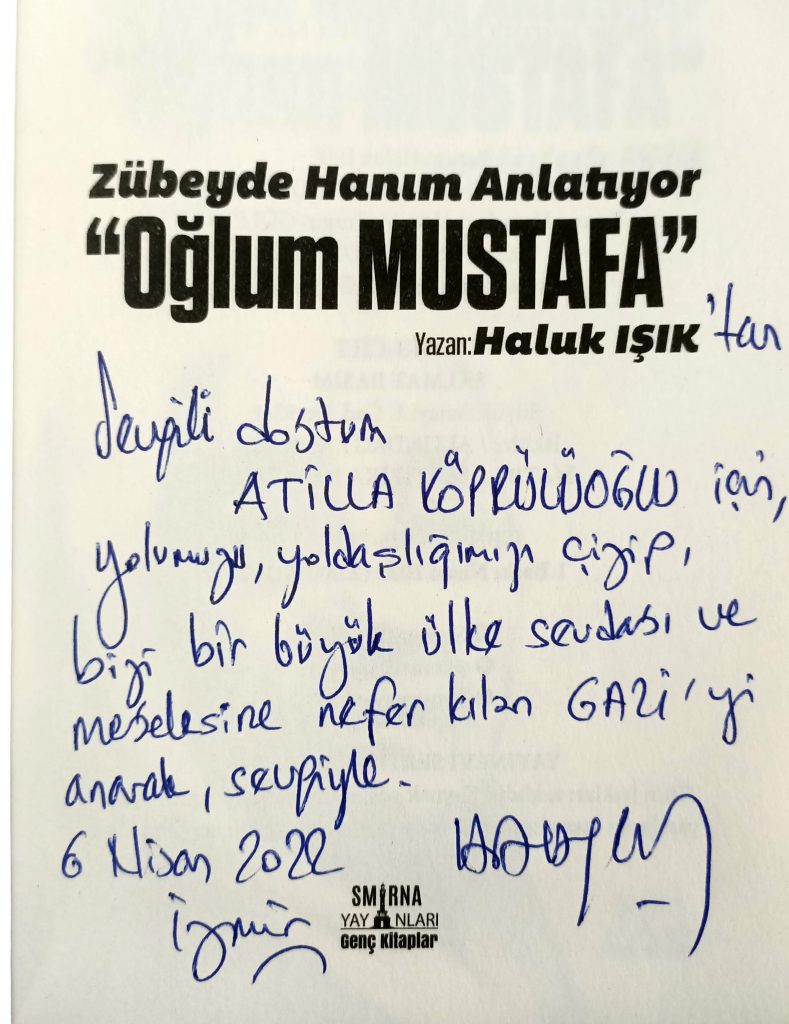 Zübeyde Hanım Anlatıyor
“Oğlum MUSTAFA”
Yazan: Haluk IŞIK 'tan
Sevgili dostum
ATİLLA KÖPRÜLÜOĞLU için,
yolumuzu, yoldaşlığımızı çizip,
bizi bir büyük ülke sevdası ve
meselesine nefer kılan GAZİ'yi
anarak, sevgiyle.
6 Nisan 2022
İzmir
SMİRNA
YAYINLARI
Genç Kitaplar